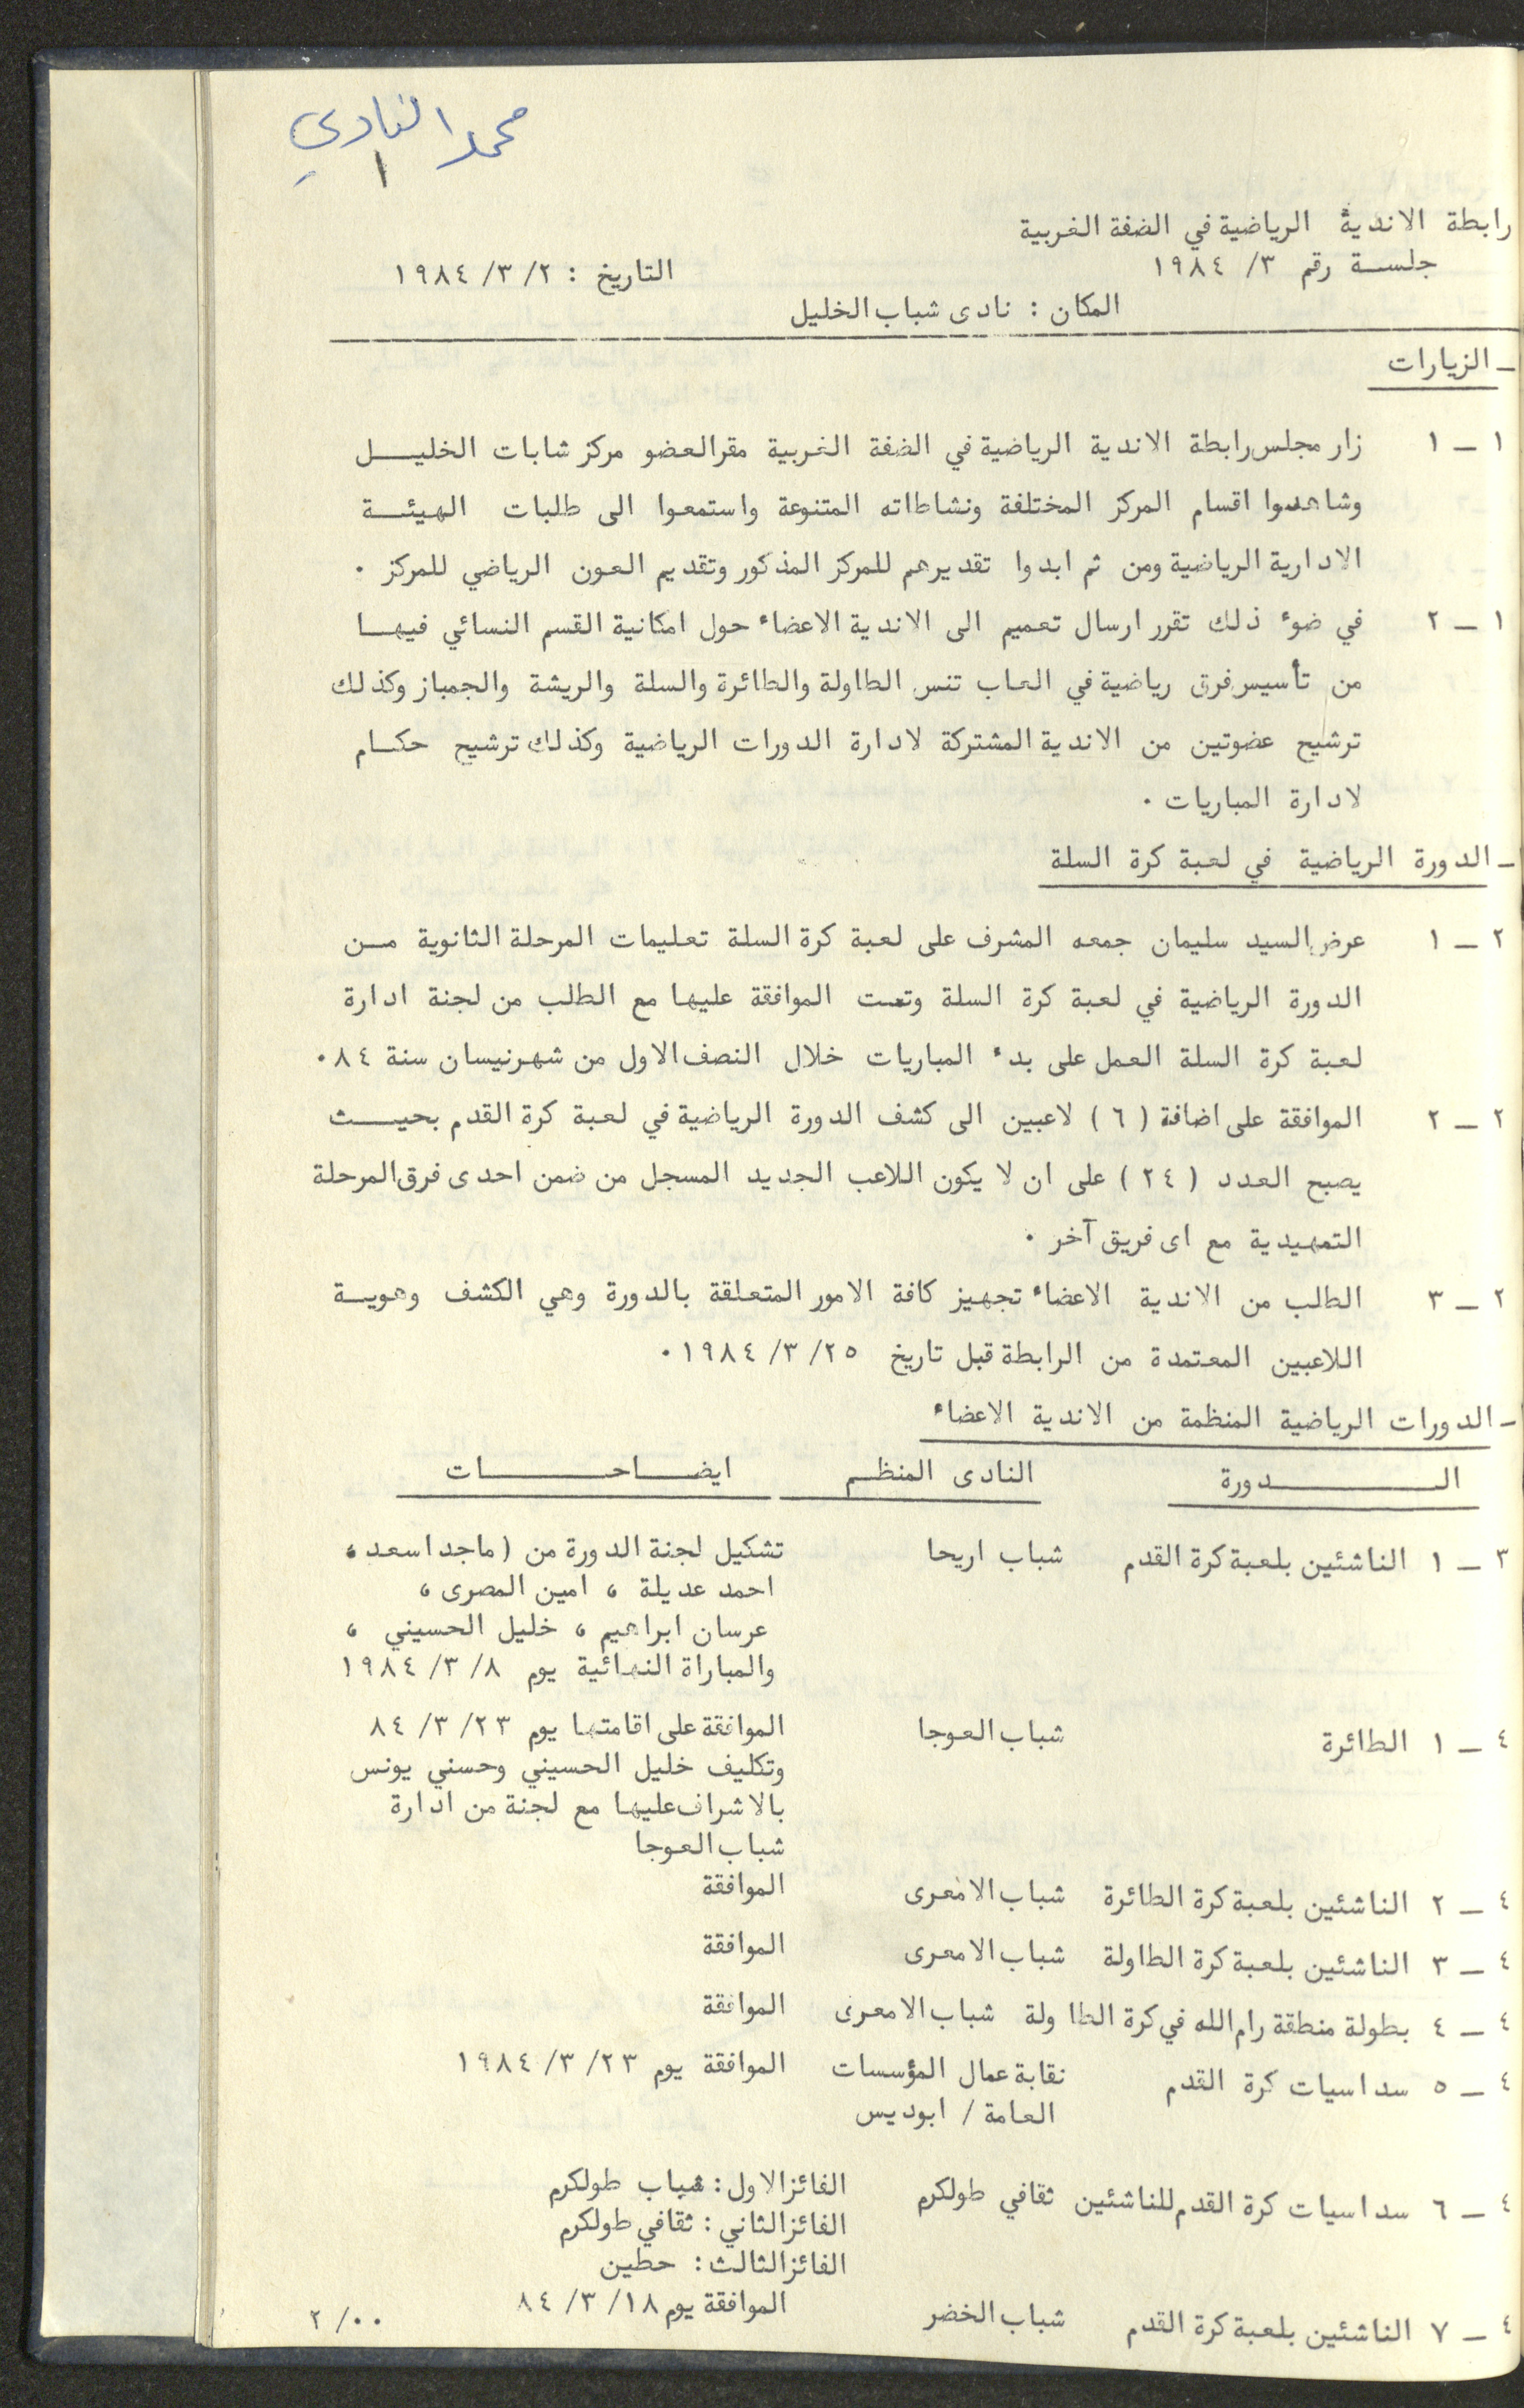 محمد النادي
١
رابطة الاندية الرياضية في الضفة الغربية
جلسة رقم ٣/ ١٩٨٤
التاريخ : ٢/ ٣/ ١٩٨٤
المكان : نادى شباب الخليل
- الزيارات
١ - ١ زار مجلس رابطة الاندية الرياضية في الضفة الغربية مقر العضو مركز شابات الخليل
وشاهدوا اقسام المركز المختلفة ونشاطاته المتنوعة واستمعوا الى طلبات الهيئة
الادارية الرياضية ومن ثم ابدوا تقديرهم للمركز المذكور وتقديم العون الرياضي للمركز .
١ - ٢ في ضوء ذلك تقرر ارسال تعميم الى الاندية الاعضاء حول امكانية القسم النسائي فيها
من تأسيس فرق رياضية في العاب تنس الطاولة والطائرة والسلة والريشة والجمباز وكذلك
ترشيح عضوتين من الاندية المشتركة لادارة الدورات الرياضية وكذلك ترشيح حكام
لادارة المباريات .
- الدورة الرياضية في لعبة كرة السلة
٢ - ١ عرض السيد سليمان جمعه المشرف على لعبة كرة السلة تعليمات المرحلة الثانوية من
الدورة الرياضية في لعبة كرة السلة وتمت الموافقة عليها مع الطلب من لجنة ادارة
لعبة كرة السلة العمل على بدء المباريات خلال النصف الاول من شهر نيسان سنة ٨٤ .
٢ - ٢ الموافقة على اضافة ( ٦ ) لاعبين الى كشف الدورة الرياضية في لعبة كرة القدم بحيث
يصبح العدد ( ٢٤ ) على ان لا يكون اللاعب الجديد المسجل من ضمن احدى فرق المرحلة
التمهيدية مع اى فريق آخر .
٢ - ٣ الطلب من الاندية الاعضاء تجهيز كافة الامور المتعلقة بالدورة وهي الكشف وهوية
اللاعبين المعتمدة من الرابطة قبل تاريخ ٢٥/ ٣/ ١٩٨٤ .
- الدورات الرياضية المنظمة من الاندية الاعضاء
الدورة النادى المنظم ايضاحات
٣ - ١ الناشئين بلعبة كرة القدم شباب اريحا تشكيل لجنة الدورة من ( ماجد اسعد ،
احمد عديلة ، امين المصرى ،
عرسان ابراهيم ، خليل الحسيني ،
والمباراة النهائية يوم ٨/ ٣/ ١٩٨٤
٤ - ١ الطائرة شباب العوجا الموافقة على اقامتها يوم ٢٣/ ٣/ ٨٤
وتكليف خليل الحسيني وحسني يونس
بالاشراف عليها مع لجنة من ادارة
شباب العوجا
٤ - ٢ الناشئين بلعبة كرة الطائرة شباب الامعرى الموافقة
٤ - ٣ الناشئين بلعبة كرة الطاولة شباب الامعرى الموافقة
٤ - ٤ بطولة منطقة رام الله في كرة الطاولة شباب الامعرى الموافقة
٤ - ٥ سداسيات كرة القدم نقابة عمال المؤسسات الموافقة يوم ٢٣/ ٣/ ١٩٨٤
العامة / ابوديس
٤ - ٦ سداسيات كرة القدم للناشئين ثقافي طولكرم الفائز الاول : شباب طولكرم
الفائز الثاني : ثقافي طولكرم
الفائز الثالث : حطين
٤ - ٧ الناشئين بلعبة كرة القدم شباب الخضر الموافقة يوم ١٨/ ٣/ ٨٤
٢/٠٠